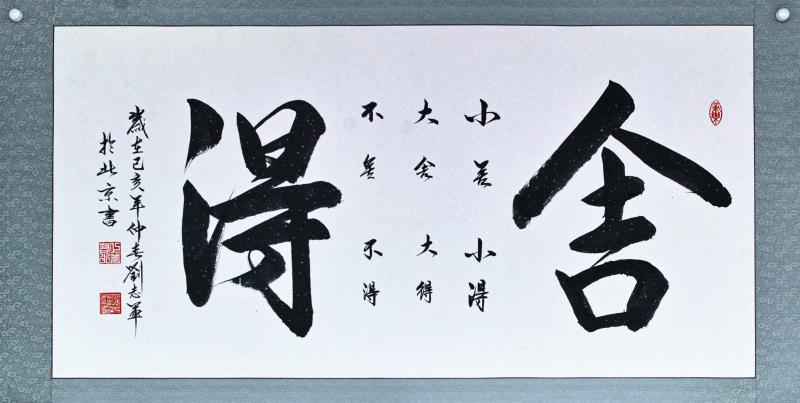 舍
小舍小得
大舍大得
不舍不得
得
歲在己亥年仲春劉志軍
於北京書